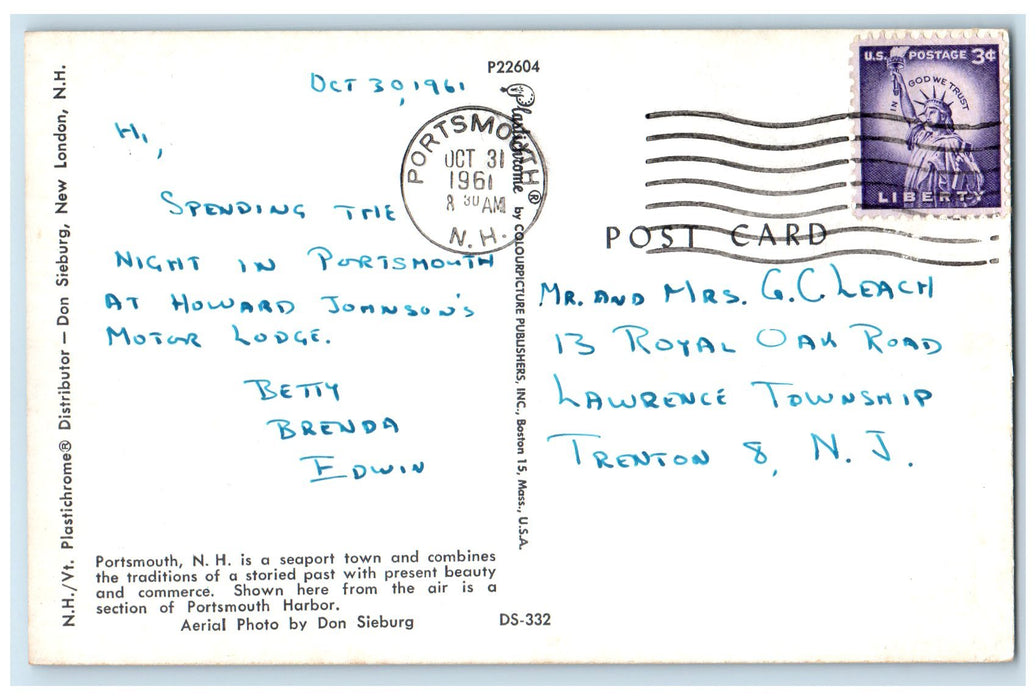 N.H./Vt. Plastichrome® Distributor — Don Sieburg, New London, N.H.
OCT 30, 1961
HI,
SPENDING THE
NIGHT IN PORTSMOUTH
AT HOWARD JOHNSON'S
MOTOR LODGE.
BETTY
BRENDA
EDWIN
Portsmouth, N. H. is a seaport town and combines
the traditions of a storied past with present beauty
and commerce. Shown here from the air is a
section of Portsmouth Harbor.
Aerial Photo by Don Sieburg
DS-332
P22604
Plastichrome® by COLOURPICTURE PUBLISHERS, INC., Boston 15, Mass., U.S.A.
PORTSMOUTH
OCT 31
1961
8 30 AM
N.H.
U.S. POSTAGE 3¢
IN GOD WE TRUST
LIBERTY
POST CARD
MR. AND MRS. G. C. LEACH
13 ROYAL OAK ROAD
LAWRENCE TOWNSHIP
TRENTON 8, N. J.